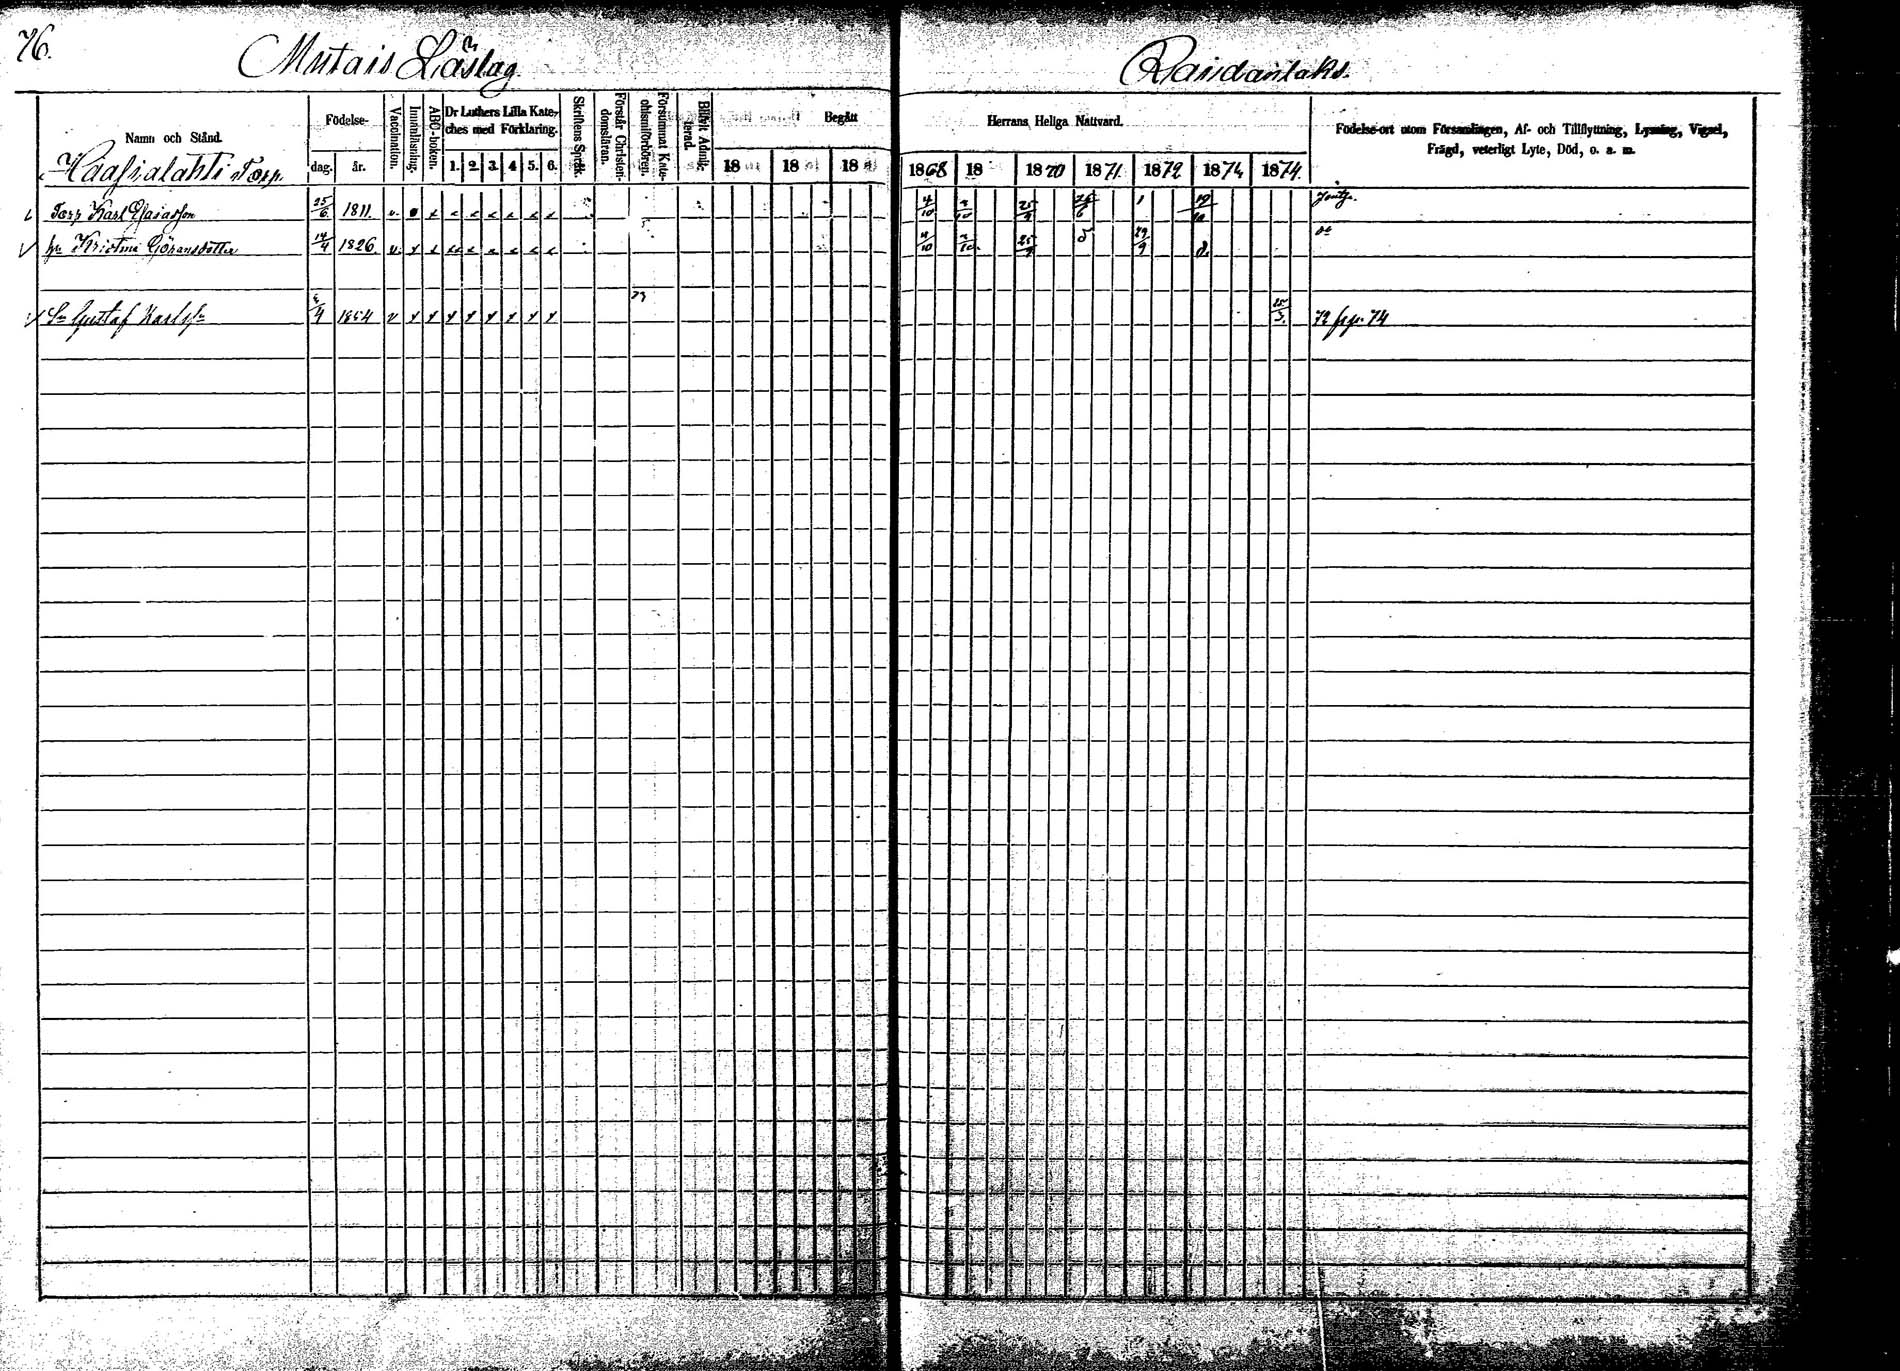 76.
Mutais Läslag.
Raidanlaks.
Namn och Stånd.
Födelse-
dag. år.
Vaccination.
Innanläsning.
ABC-boken.
Dr Luthers Lilla Kate-
ches med Förklaring.
1. 2. 3. 4 5. 6.
Skriftens Språk.
Förstår Christen-
domsläran.
Försummat Kate-
chismiförhören.
Blifvit Admit-
terad.
Begått
18 18 18
Herrans Heliga Nattvard.
1868 18 1870 1871 1872 1874 1874.
Födelse-ort utom Församlingen, Af- och Tillflyttning, Lysning, Vigsel,
Frägd, veterligt Lyte, Död, o. a. m.
Haasialahti Torp.
Torp Karl Esaiasson 25/6 1811. v. 4/10 25/9 26/6 1
hu Kristina Göransdotter 14/4 1826. v. 4/10 25/9 29/9
Sn Gustaf Karlssn 1854 v 25/3. 72 74